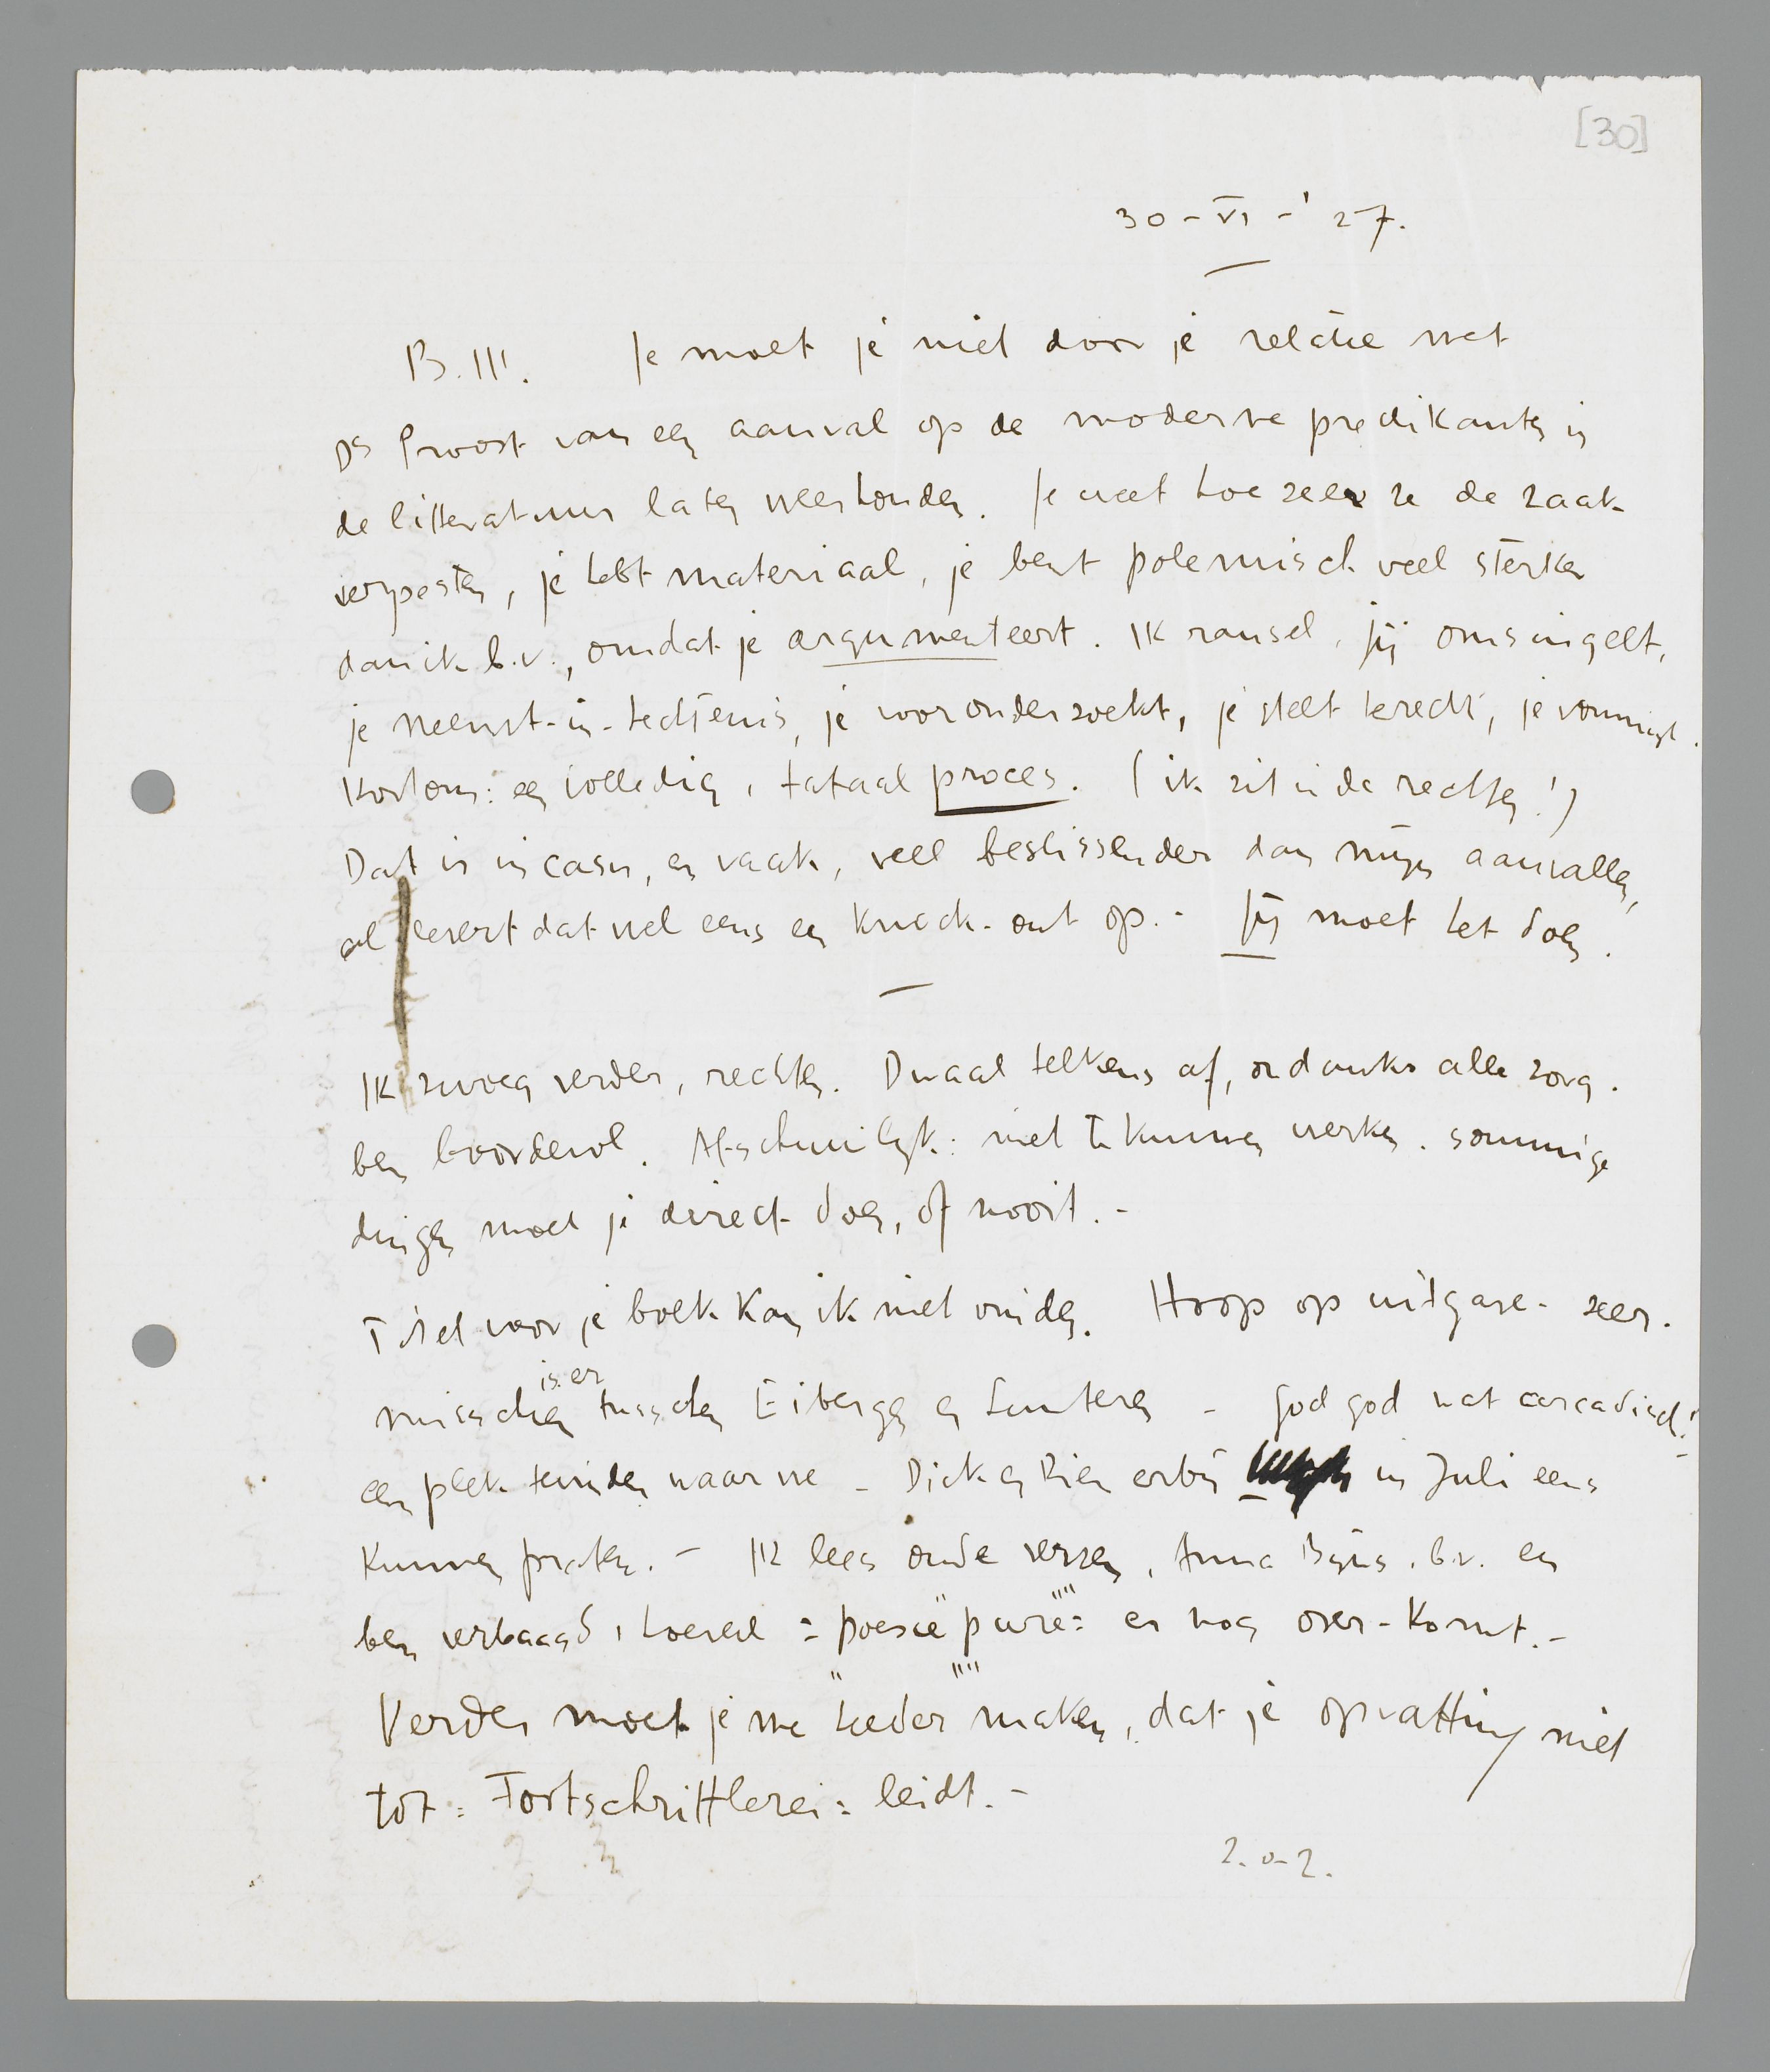 [30]
30-VI-'27.
B.III. Je moet je niet door je relatie met
Ds Proost van een aanval op de moderne predikanten in
de litteratuur laten weerhouden. Je weet hoe zeer ze de zaak
verpesten, je hebt materiaal, je bent polemisch veel sterker
dan ik b.v., omdat je argumenteert. Ik ransel, jij omsingelt,
je neemt-in-hechtenis, je vooronderzoekt, je stelt terecht, je vonnist.
Kortom: een volledig, totaal proces. (ik zit in de rechten!)
Dat is in casu, en vaak, veel beslissender dan mijn aanvallen,
al levert dat wel eens een knock-out op.- Jij moet het doen.
Ik zwoeg verder, rechten. Dwaal telkens af, ondanks alle zorg.
ben boordevol. Afschuwlijk: niet te kunnen werken. sommige
dingen moet je direct doen, of nooit.-
Titel voor je boek kan ik niet vinden. Hoop op uitgave- zeer.
misschien is er tusschen Eibergen en Lunteren - God god wat arcadisch!
een plek te vinden waar we - Dick en Rien erbij in Juli eens
kunnen praten.- Ik lees oude verzen, Anna Bijns, b.v. en
ben verbaasd, hoeveel =poesie" pure""= er nog over-komt.-
Verder moet je me "helder"" maken, dat je opvatting niet
tot = Fortschrittlerei = leidt.-
z.o.z.